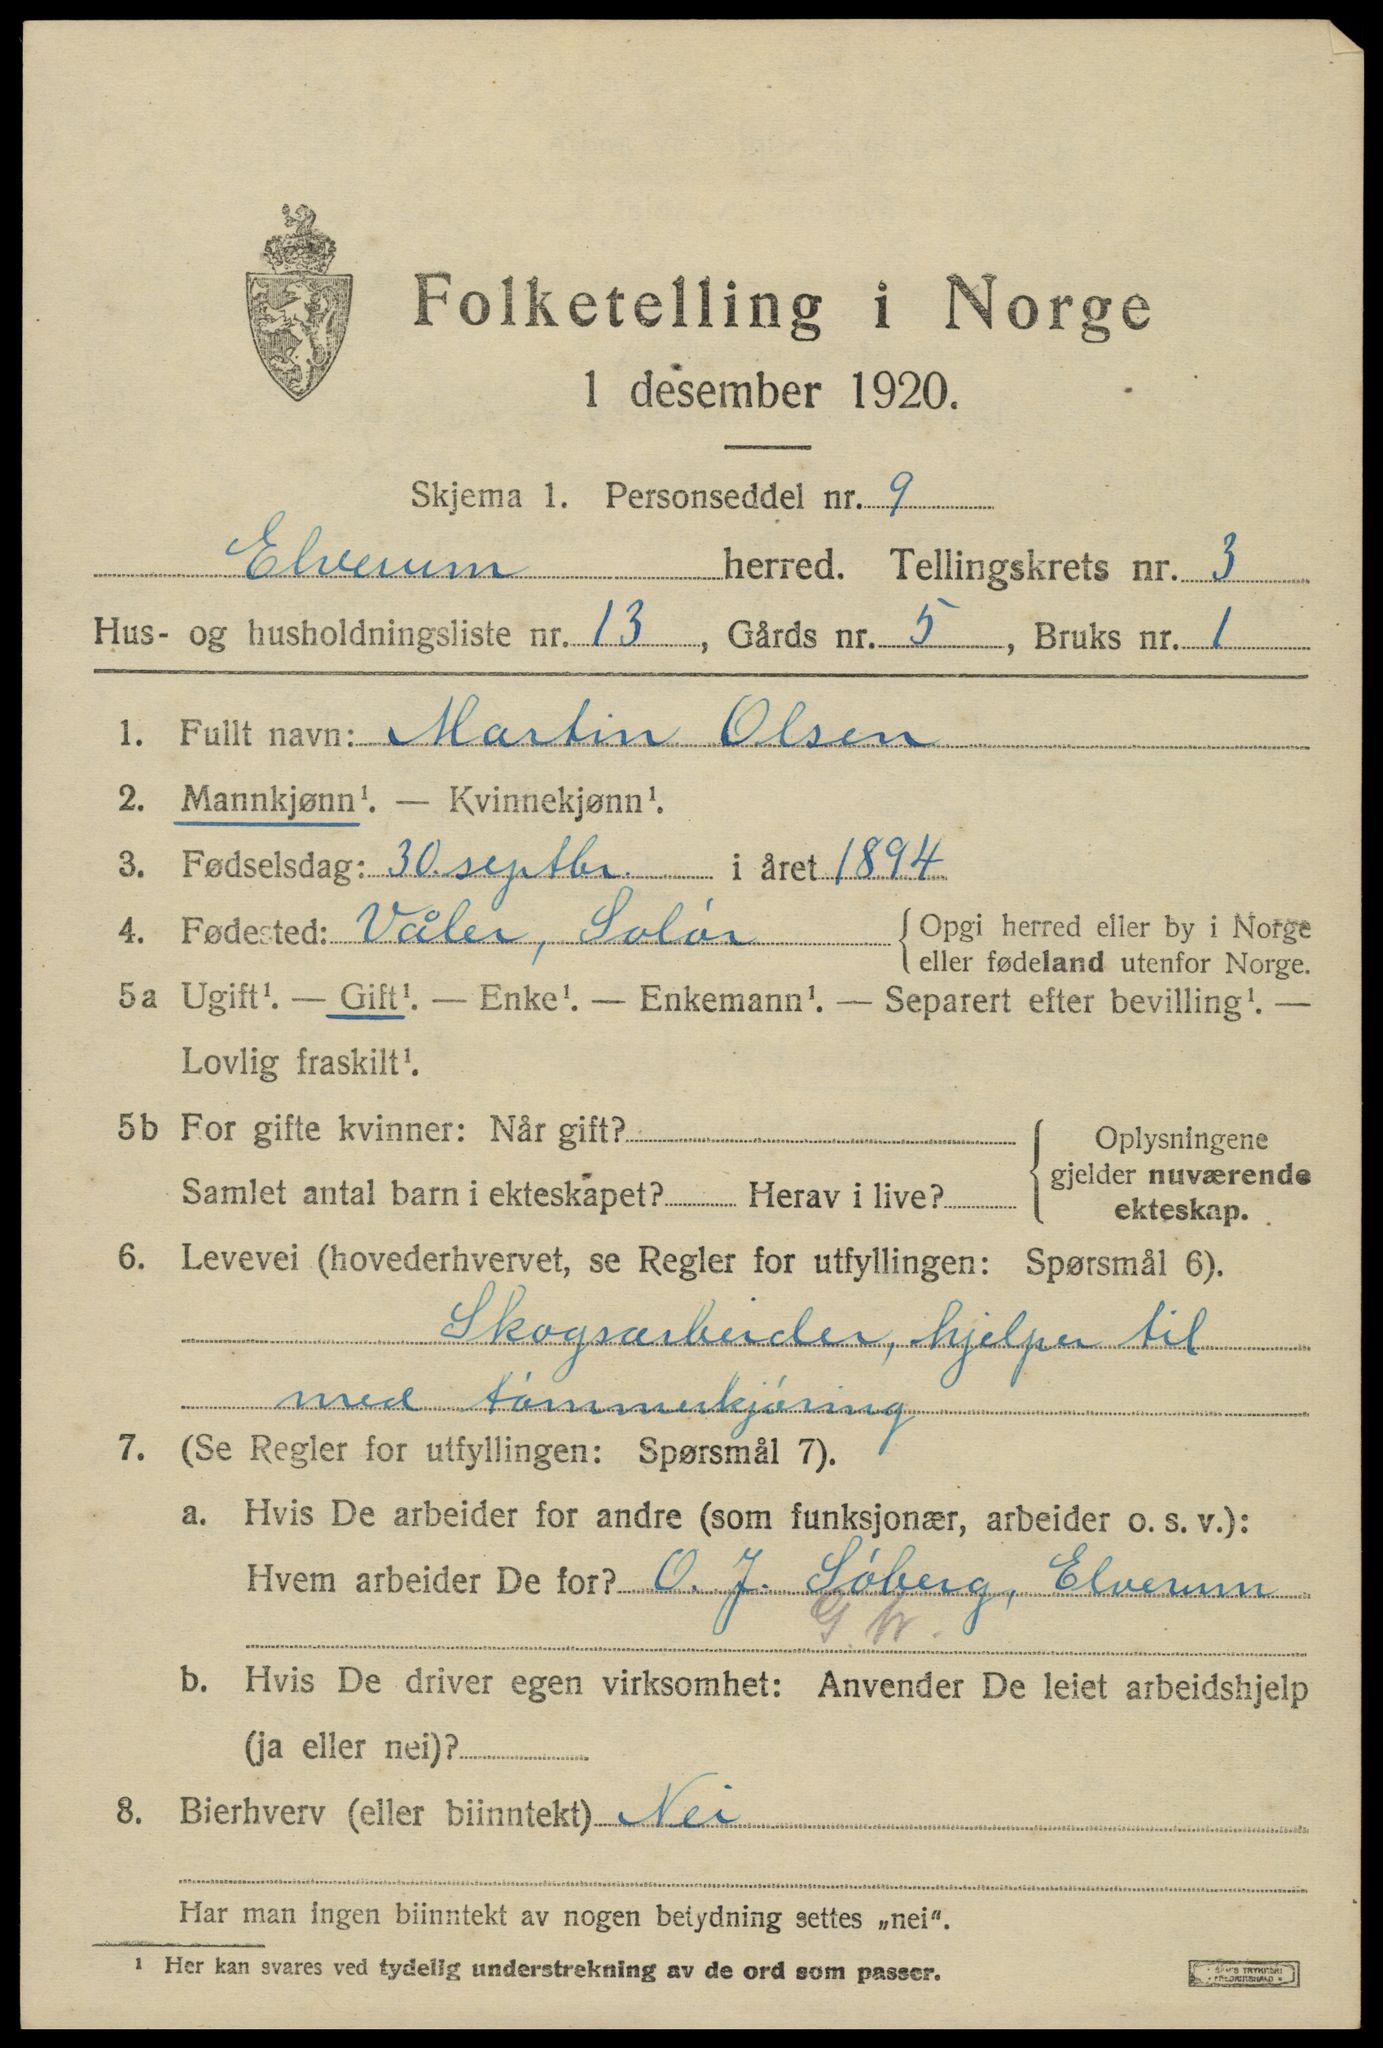 Folketelling i Norge
1 desember 1920.
Skjema 1. Personseddel nr. 9
Elverum herred. Tellingskrets nr. 3
Hus- og husholdningsliste nr. 13, Gårds nr. 5, Bruks nr. 1
1. Fullt navn: Martin Olsen
2. Mannkjønn¹. — Kvinnekjønn¹.
3. Fødselsdag: 30. septbr. i året 1894
4. Fødested: Våler, Solór { Opgi herred eller by i Norge
eller fødeland utenfor Norge.
5a Ugift¹. — Gift¹. — Enke¹. — Enkemann¹. — Separert efter bevilling¹. —
Lovlig fraskilt¹.
5b For gifte kvinner: Når gift? { Oplysningene
gjelder nuværende
Samlet antal barn i ekteskapet? Herav i live?
ekteskap.
6. Levevei (hovederhvervet, se Regler for utfyllingen: Spørsmål 6).
Skogsarbeider, hjelper til
med tómmerkjóring
7. (Se Regler for utfyllingen: Spørsmål 7).
a. Hvis De arbeider for andre (som funksjonær, arbeider o. s. v.):
Hvem arbeider De for? O. J. Sóberg, Elverum
b. Hvis De driver egen virksomhet: Anvender De leiet arbeidshjelp
(ja eller nei)?
8. Bierhverv (eller biinntekt) Nei
Har man ingen biinntekt av nogen betydning settes „nei“.
¹ Her kan svares ved tydelig understrekning av de ord som passer.